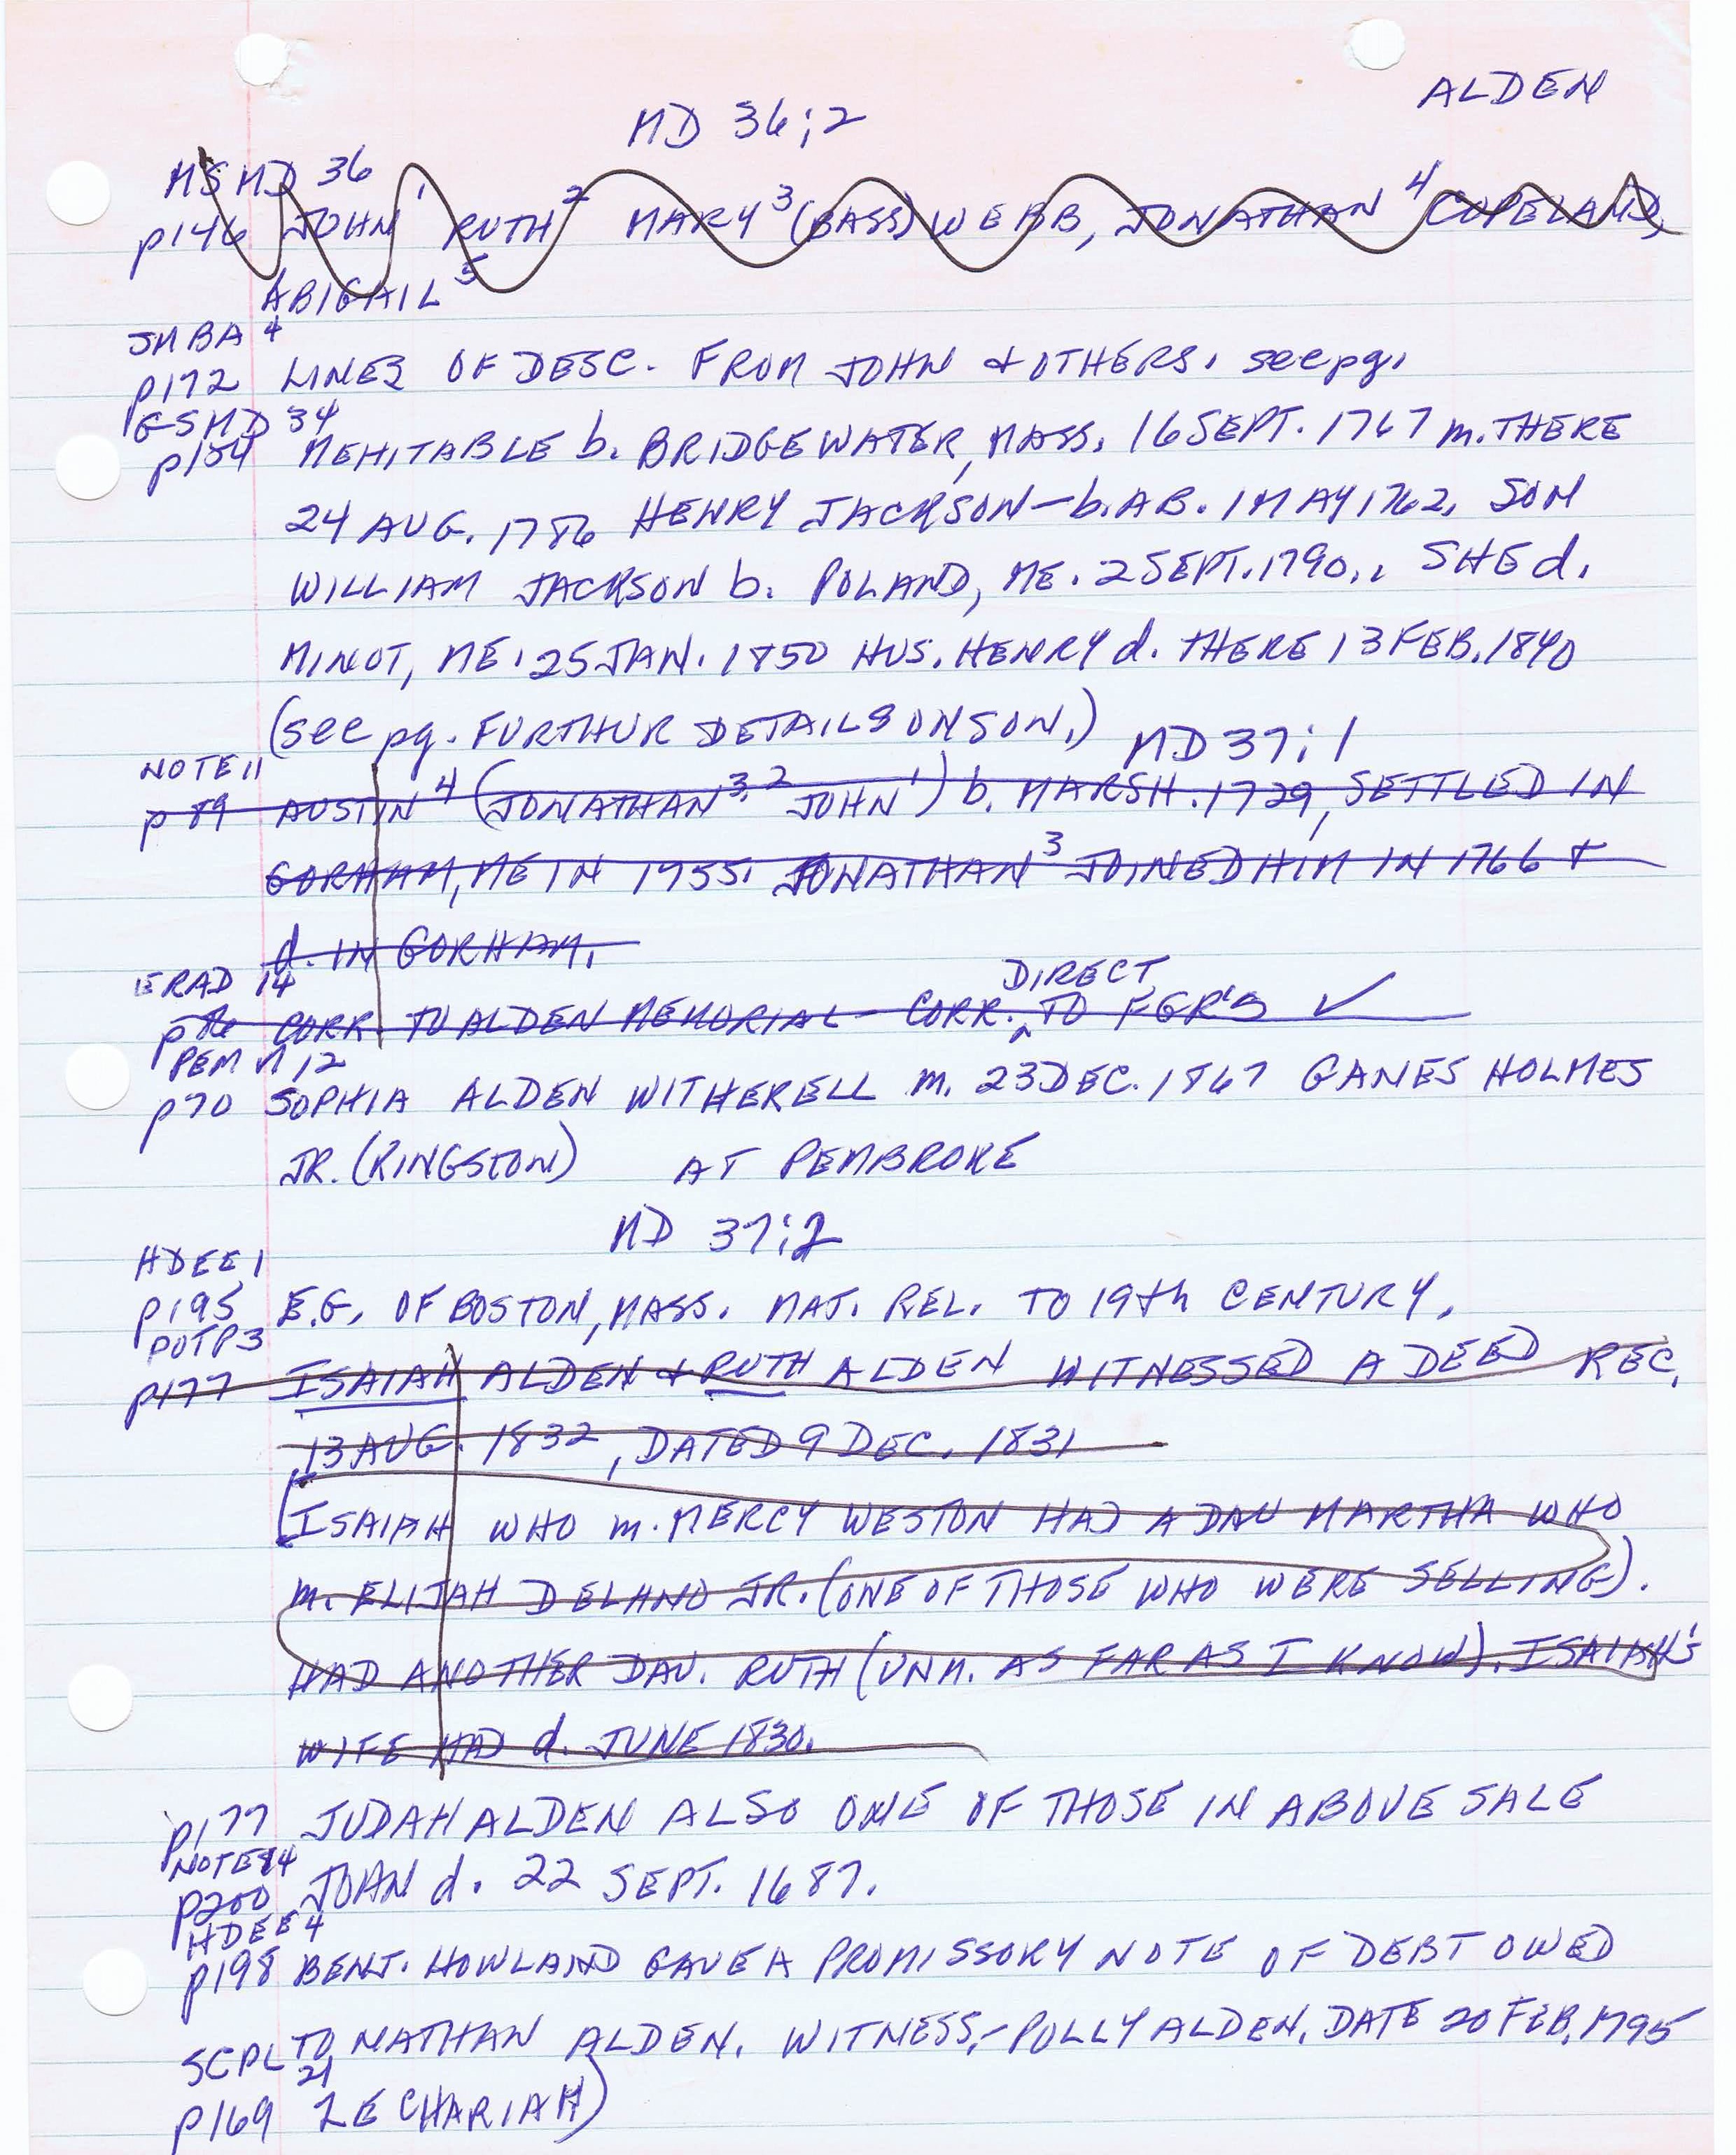 ALDEN
MD 36;2
MSMD 36
p146 JOHN¹ RUTH² MARY³ (BASS) WEBB, JONATHAN⁴ COPELAND,
ABIGAIL⁵
JMBA 4
p172 LINES OF DESC. FROM JOHN & OTHERS. see pg.
GSMD 34
p154 MEHITABLE b. BRIDGEWATER, MASS. 16 SEPT. 1767 m. THERE
24 AUG. 1786 HENRY JACKSON - b. AB. 1 MAY 1762, SON
WILLIAM JACKSON b. POLAND, ME. 2 SEPT. 1790., SHE d.
MINOT, ME. 25 JAN. 1850 HUS. HENRY d. THERE 13 FEB. 1840
(see pg. FURTHUR DETAILS ON SON.)
MD 37;1
NOTE 11
p89 AUSTIN⁴ (JONATHAN³,² JOHN¹) b. MARSH. 1729, SETTLED IN
GORHAM, ME IN 1955. JONATHAN³ JOINED HIM IN 1766 &
d. IN GORHAM.
ERAD 14 DIRECT
CORR. TO ALDEN MEMORIAL - CORR. ^ TO FGR'S ✓
PEM M 12
p70 SOPHIA ALDEN WITHERELL m. 23 DEC. 1867 GANES HOLMES
JR. (KINGSTON) AT PEMBROKE
MD 37;2
HDEE 1
p195 E.G. OF BOSTON, MASS. MAT. REL. TO 19th CENTURY.
POTP 3
p177 ISAIAH ALDEN & RUTH ALDEN WITNESSED A DEED REC.
13 AUG. 1832, DATED 9 DEC. 1831
[ISAIAH WHO m. MERCY WESTON HAD A DAU MARTHA WHO
m. ELIJAH DELANO JR. (ONE OF THOSE WHO WERE SELLING).
HAD ANOTHER DAU. RUTH (UNM. AS FAR AS I KNOW). ISAIAH'S
WIFE HAD d. JUNE 1830.
p177 JUDAH ALDEN ALSO ONE OF THOSE IN ABOVE SALE
NOTE 14
p200 JOHN d. 22 SEPT. 1687.
HDEE 4
p198 BENJ. HOWLAND GAVE A PROMISSORY NOTE OF DEBT OWED
TO NATHAN ALDEN. WITNESS, - POLLY ALDEN. DATE 20 FEB. 1795
SCPL 21
p169 ZECHARIAH)